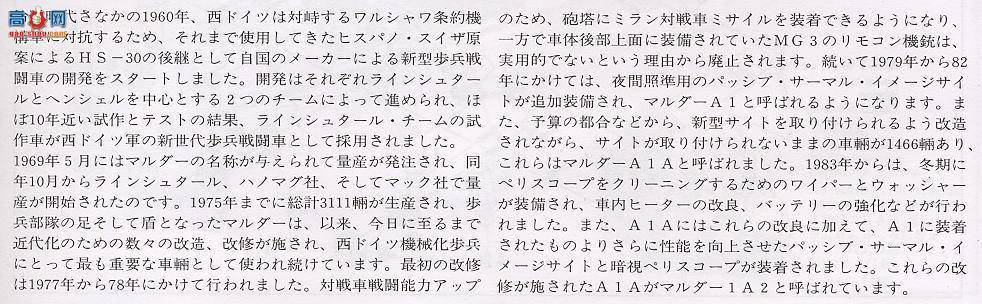 時代さなかの1960年、西ドイツは対峙するワルシャワ条約機
構軍に対抗するため、それまで使用してきたヒスパノ・スイザ原
案によるHS−30の後継として自国のメーカーによる新型歩兵戦
闘車の開発をスタートしました。開発はそれぞれラインシュター
ルとヘンシェルを中心とする2つのチームによって進められ、ほ
ぼ10年近い試作とテストの結果、ラインシュタール・チームの試
作車が西ドイツ軍の新世代歩兵戦闘車として採用されました。
1969年5月にはマルダーの名称が与えられて量産が発注され、同
年10月からラインシュタール、ハノマグ社、そしてマック社で量
産が開始されたのです。1975年までに総計3111輛が生産され、歩
兵部隊の足そして盾となったマルダーは、以来、今日に至るまで
近代化のための数々の改造、改修が施され、西ドイツ機械化歩兵
にとって最も重要な車輛として使われ続けています。最初の改修
は1977年から78年にかけて行われました。対戦車戦闘能力アップ
のため、砲塔にミラン対戦車ミサイルを装着できるようになり、
一方で車体後部上面に装備されていたMG3のリモコン機銃は、
実用的でないという理由から廃止されます。続いて1979年から82
年にかけては、夜間照準用のパッシブ・サーマル・イメージサイ
トが追加装備され、マルダーA1と呼ばれるようになります。ま
た、予算の都合などから、新型サイトを取り付けられるよう改造
されながら、サイトが取り付けられないままの車輛が1466輛あり、
これらはマルダーA1Aと呼ばれました。1983年からは、冬期に
ペリスコープをクリーニングするためのワイパーとウォッシャー
が装備され、車内ヒーターの改良、バッテリーの強化などが行わ
れました。また、A1Aにはこれらの改良に加えて、A1に装着
されたものよりさらに性能を向上させたパッシブ・サーマル・イ
メージサイトと暗視ペリスコープが装着されました。これらの改
修が施されたA1Aがマルダー1A2と呼ばれています。